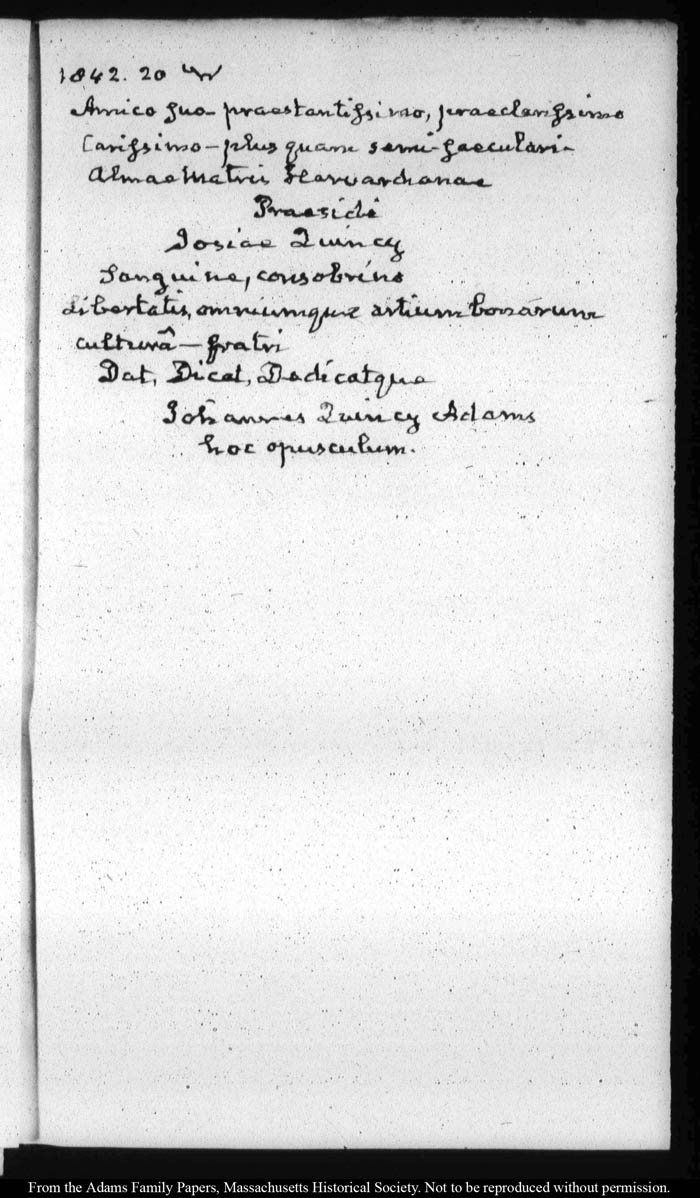 1842. 20
Amico suo praestantissimo, praeclarissimo
Carissimo – plus quam semi-saeculari –
Almae Matris Harvardianae
Praesidi
Josiae Quincy
Sanguine, consobrino
Libertatis, omniumque artium bonarum
culturâ – fratri
Dat, Dicat, Dedicatque
Johannes Quincy Adams
hoc opusculum.
From the Adams Family Papers, Massachusetts Historical Society. Not to be reproduced without permission.